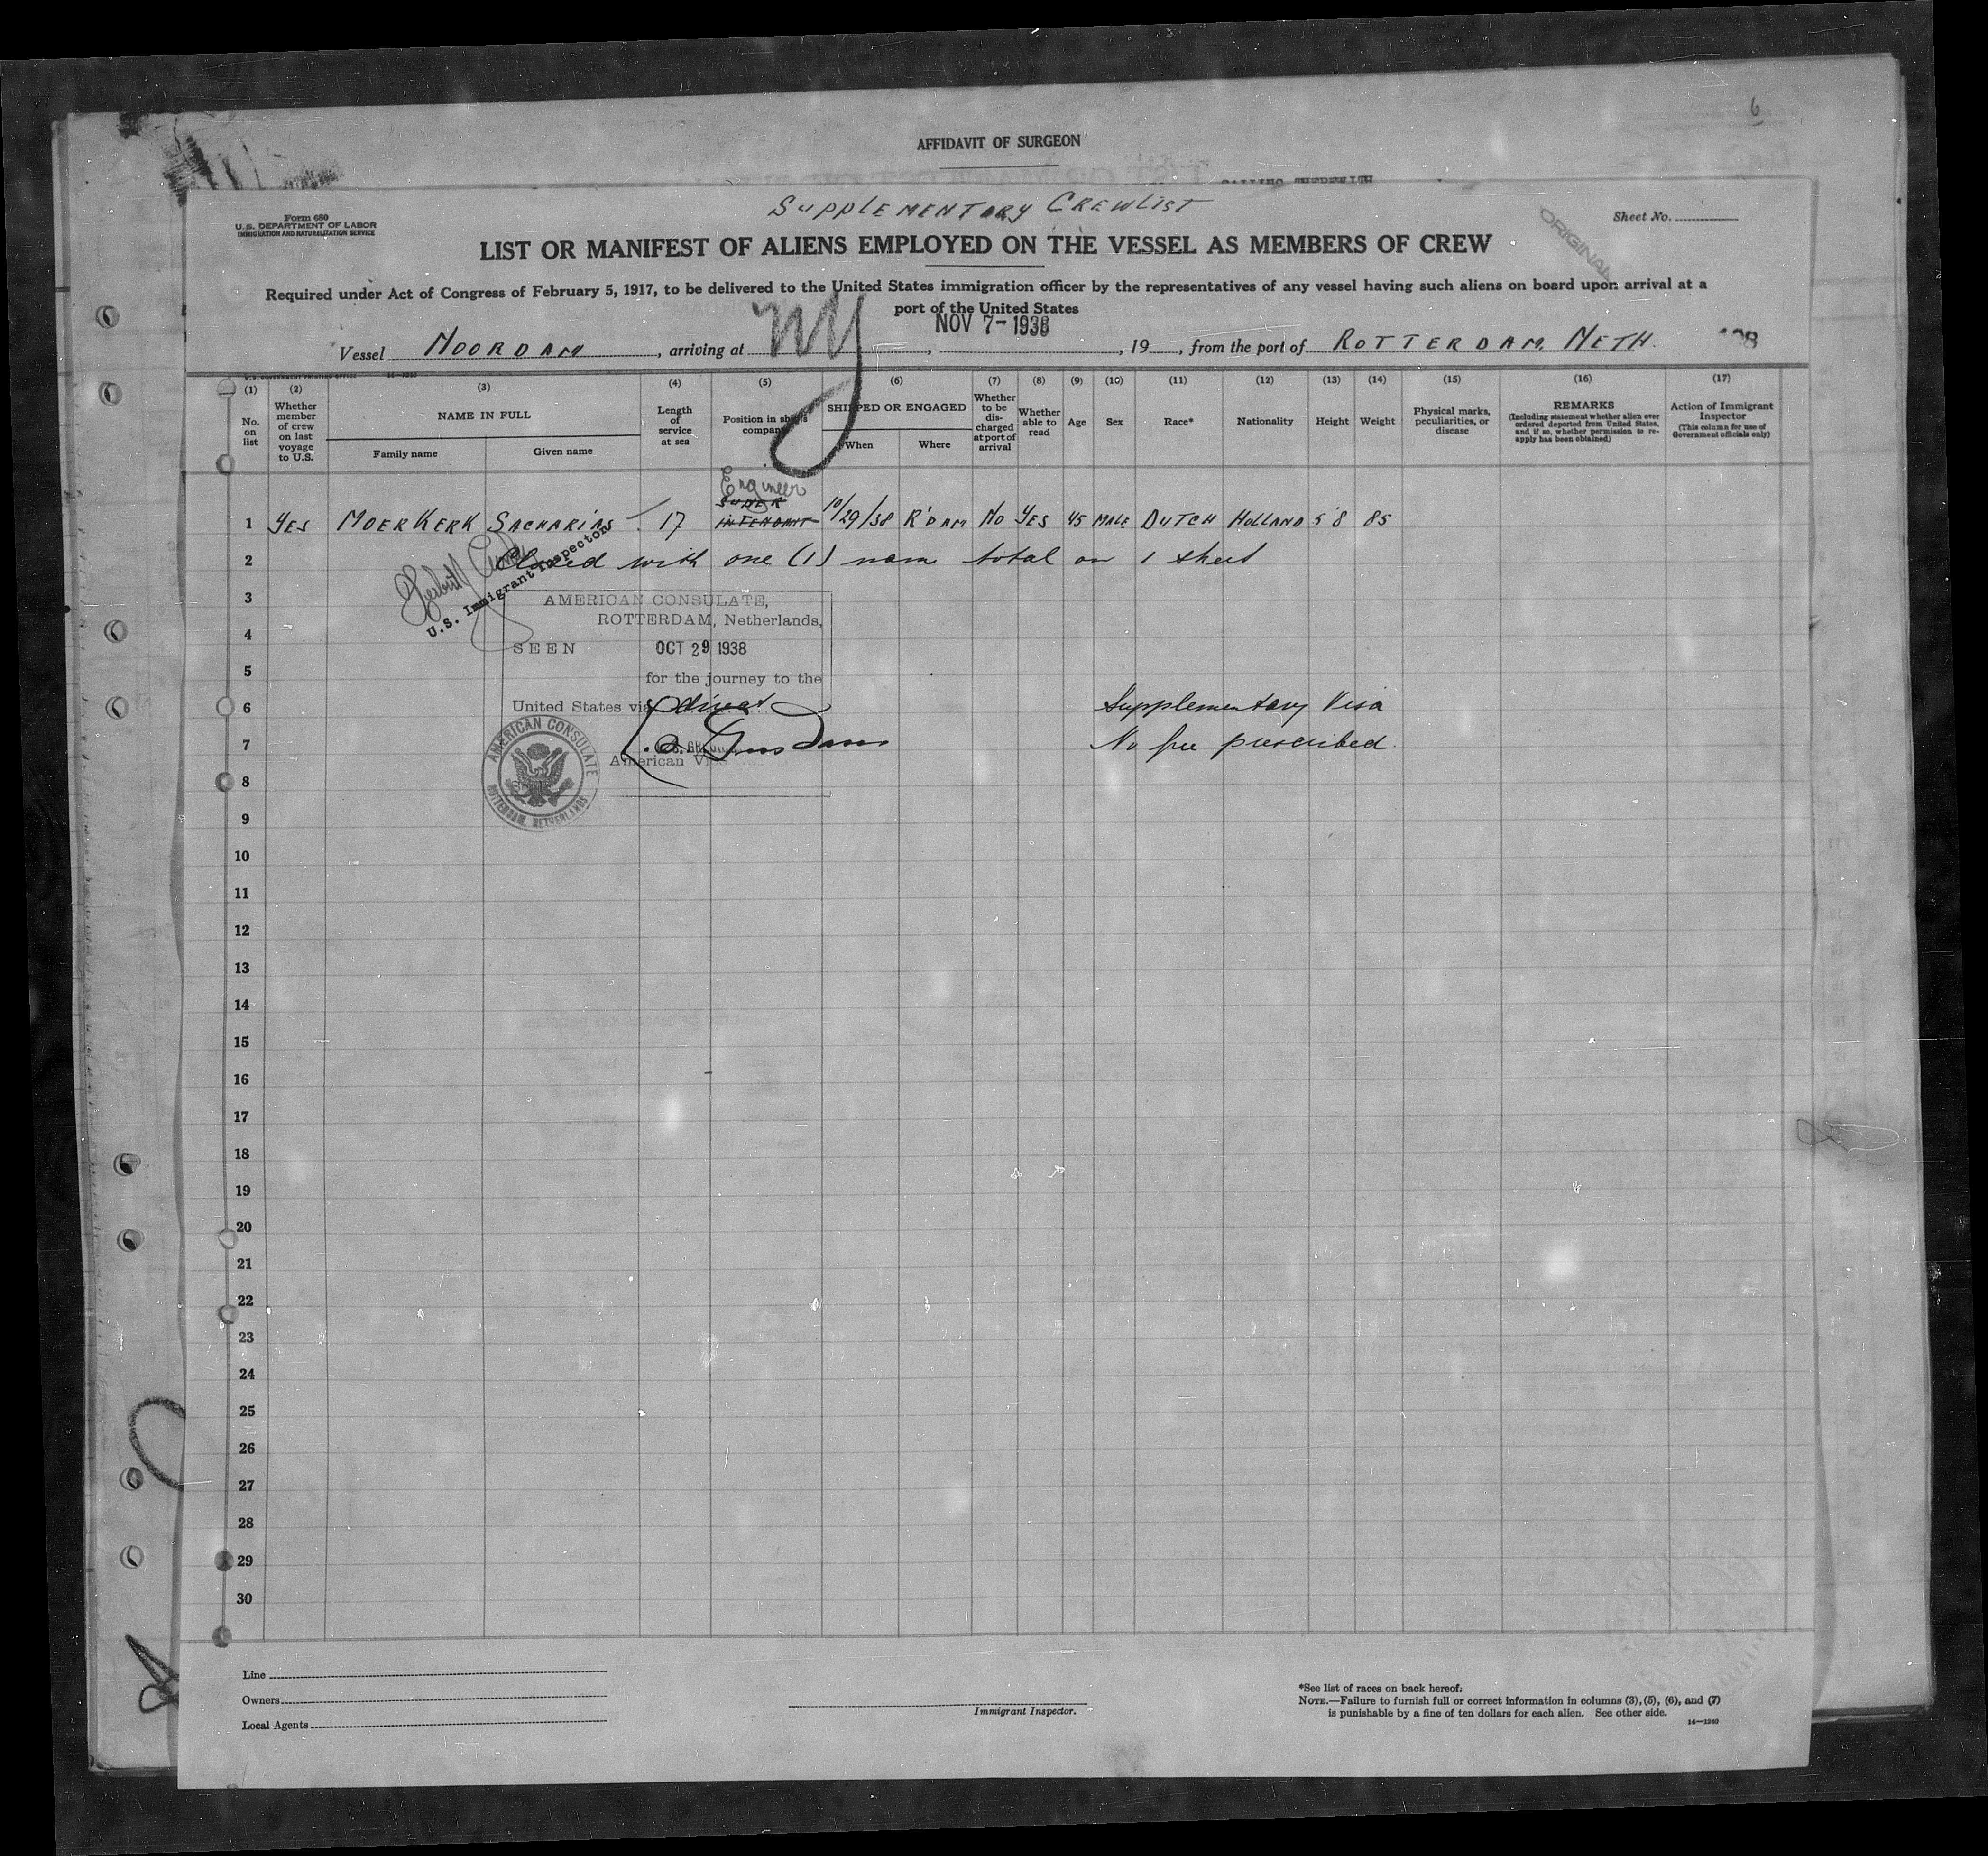 6
AFFIDAVIT OF SURGEON
SUPPLEMENTARY CREWLIST
Form 680
U.S. DEPARTMENT OF LABOR
IMMIGRATION AND NATURALIZATION SERVICE
Sheet No.
ORIGINAL
LIST OR MANIFEST OF ALIENS EMPLOYED ON THE VESSEL AS MEMBERS OF CREW
Required under Act of Congress of February 5, 1917, to be delivered to the United States immigration officer by the representatives of any vessel having such aliens on board upon arrival at a
port of the United States
Vessel NOORDAM, arriving at NY, NOV 7-1938, 19, from the port of ROTTERDAM. NETH.
U.S. GOVERNMENT PRINTING OFFICE
(1) (2) (3) (4) (5) (6) (7) (8) (9) (10) (11) (12) (13) (14) (15) (16) (17)
No. on list
Whether member of crew on last voyage to U.S.
NAME IN FULL
Family name
Given name
Length of service at sea
Position in ship's company
SHIPPED OR ENGAGED
When
Where
Whether to be discharged at port of arrival
Whether able to read
Age
Sex
Race*
Nationality
Height
Weight
Physical marks, peculiarities, or disease
REMARKS
(Including statement whether alien ever ordered deported from United States, and if so, whether permission to reapply has been obtained)
Action of Immigrant Inspector
(This column for use of Government officials only)
Engineer
SUPER
1 YES MOERKERK SACHARIAS 17 INTENDANT 10/29/38 R'DAM NO YES 45 MALE DUTCH HOLLAND 5'8 85
2 Closed with one (1) name total on 1 sheet
U.S. Immigrant Inspector
3 AMERICAN CONSULATE,
ROTTERDAM, Netherlands,
4 SEEN OCT 29 1938
5 for the journey to the
6 United States via direct Supplementary Visa
7 No fee prescribed.
American Vi
AMERICAN CONSULATE
ROTTERDAM, NETHERLANDS
8
9
10
11
12
13
14
15
16
17
18
19
20
21
22
23
24
25
26
27
28
29
30
Line
Owners
Local Agents
Immigrant Inspector.
*See list of races on back hereof.
NOTE.—Failure to furnish full or correct information in columns (3), (5), (6), and (7)
is punishable by a fine of ten dollars for each alien. See other side.
14—1240